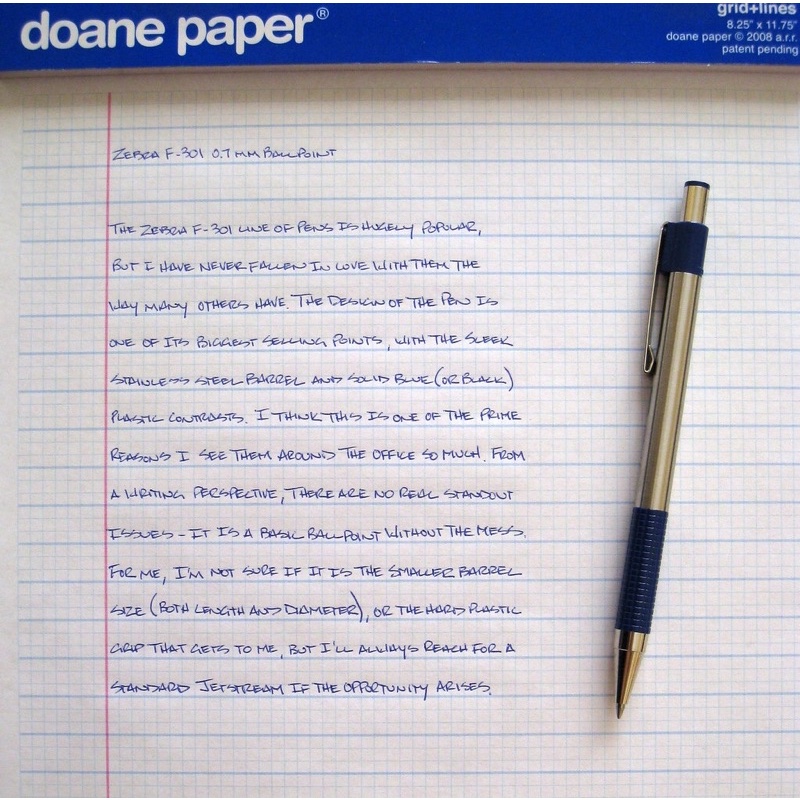 doane paper®
grid+lines
8.25" x 11.75"
doane paper © 2008 a.r.r.
patent pending
ZEBRA F-301 0.7 MM BALLPOINT
THE ZEBRA F-301 LINE OF PENS IS HUGELY POPULAR,
BUT I HAVE NEVER FALLEN IN LOVE WITH THEM THE
WAY MANY OTHERS HAVE. THE DESIGN OF THE PEN IS
ONE OF ITS BIGGEST SELLING POINTS, WITH THE SLEEK
STAINLESS STEEL BARREL AND SOLID BLUE (OR BLACK)
PLASTIC CONTRASTS. I THINK THIS IS ONE OF THE PRIME
REASONS I SEE THEM AROUND THE OFFICE SO MUCH. FROM
A WRITING PERSPECTIVE, THERE ARE NO REAL STANDOUT
ISSUES - IT IS A BASIC BALLPOINT WITHOUT THE MESS.
FOR ME, I'M NOT SURE IF IT IS THE SMALLER BARREL
SIZE (BOTH LENGTH AND DIAMETER), OR THE HARD PLASTIC
GRIP THAT GETS TO ME, BUT I'LL ALWAYS REACH FOR A
STANDARD JETSTREAM IF THE OPPORTUNITY ARISES.